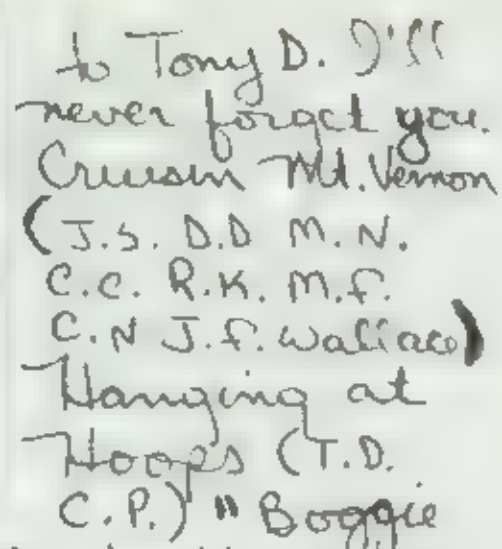 to Tony D. I'll
never forget you.
Cruisin Mt. Vernon
(J.S. D.D M.N.
C.C. R.K. M.F.
C.N J.F. Wallace)
Hanging at
Hoops (T.D.
C.P.) " Boggie